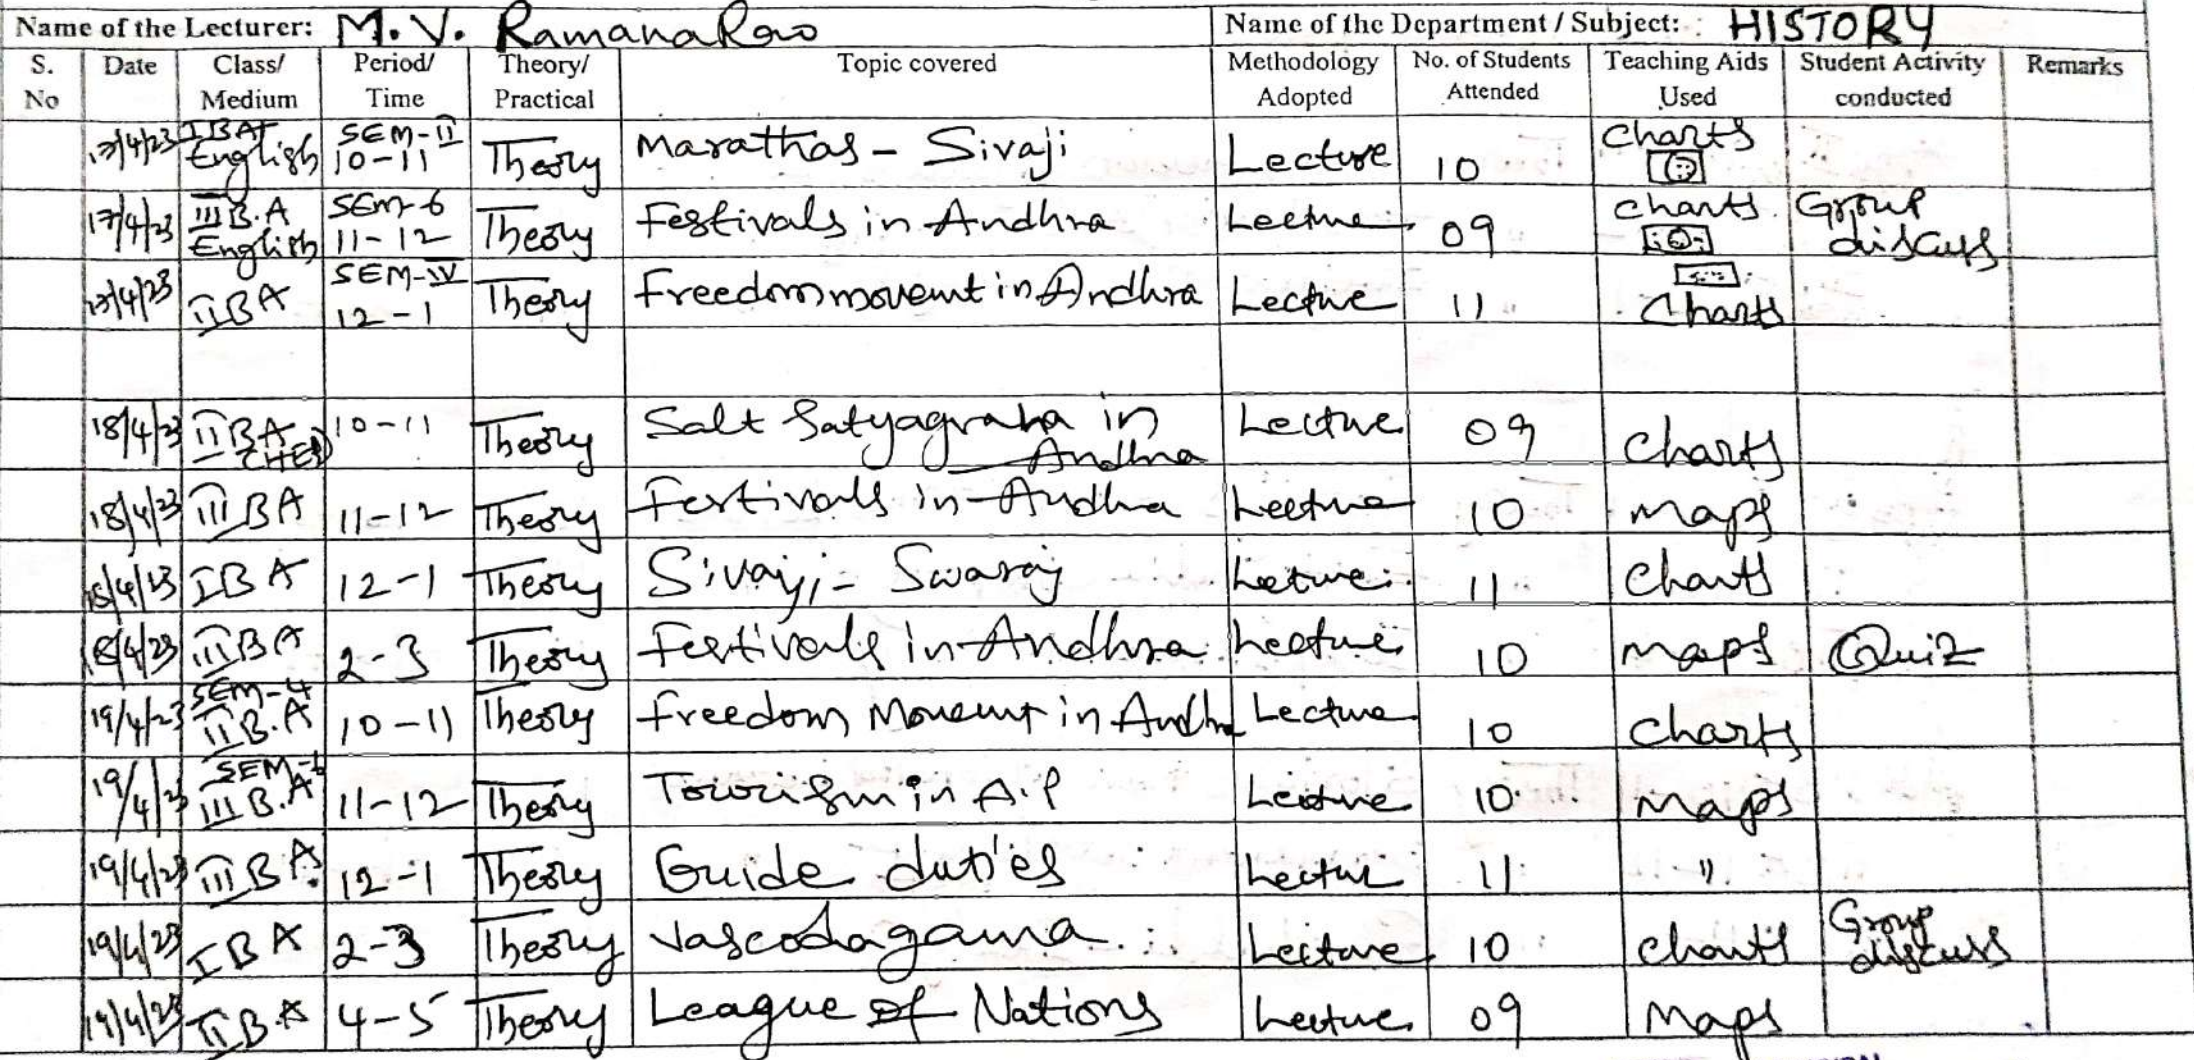 Name of the Lecturer: M. V. RamanaRao Name of the Department / Subject: : HISTORY
S. No Date Class/ Medium Period/ Time Theory/ Practical Topic covered Methodology Adopted No. of Students Attended Teaching Aids Used Student Activity conducted Remarks
17/4/23 I BA English SEM-II 10-11 Theory Marathas - Sivaji Lecture 10 Charts
17/4/23 III B.A English SEM-6 11-12 Theory Festivals in Andhra Lecture 09 Charts Group discuss
17/4/23 II BA SEM-IV 12-1 Theory Freedom movemt in Andhra Lecture 11 Charts
18/4/23 II BA 10-11 Theory Salt Satyagraha in Andhra Lecture 09 Charts
18/4/23 III BA 11-12 Theory Festivals in Andhra Lecture 10 Maps
18/4/23 I BA 12-1 Theory Sivaji - Swaraj Lecture 11 Charts
18/4/23 III BA 2-3 Theory Festivals in Andhra Lecture 10 Maps Quiz
19/4/23 SEM-4 II B.A 10-11 Theory Freedom Movemt in Andhra Lecture 10 Charts
19/4/23 SEM-6 III B.A 11-12 Theory Tourism in A.P Lecture 10 Maps
19/4/23 III BA 12-1 Theory Guide duties Lecture 11 "
19/4/23 I BA 2-3 Theory Vascodagama Lecture 10 Charts Group discuss
19/4/23 II B.A 4-5 Theory League of Nations Lecture 09 Maps